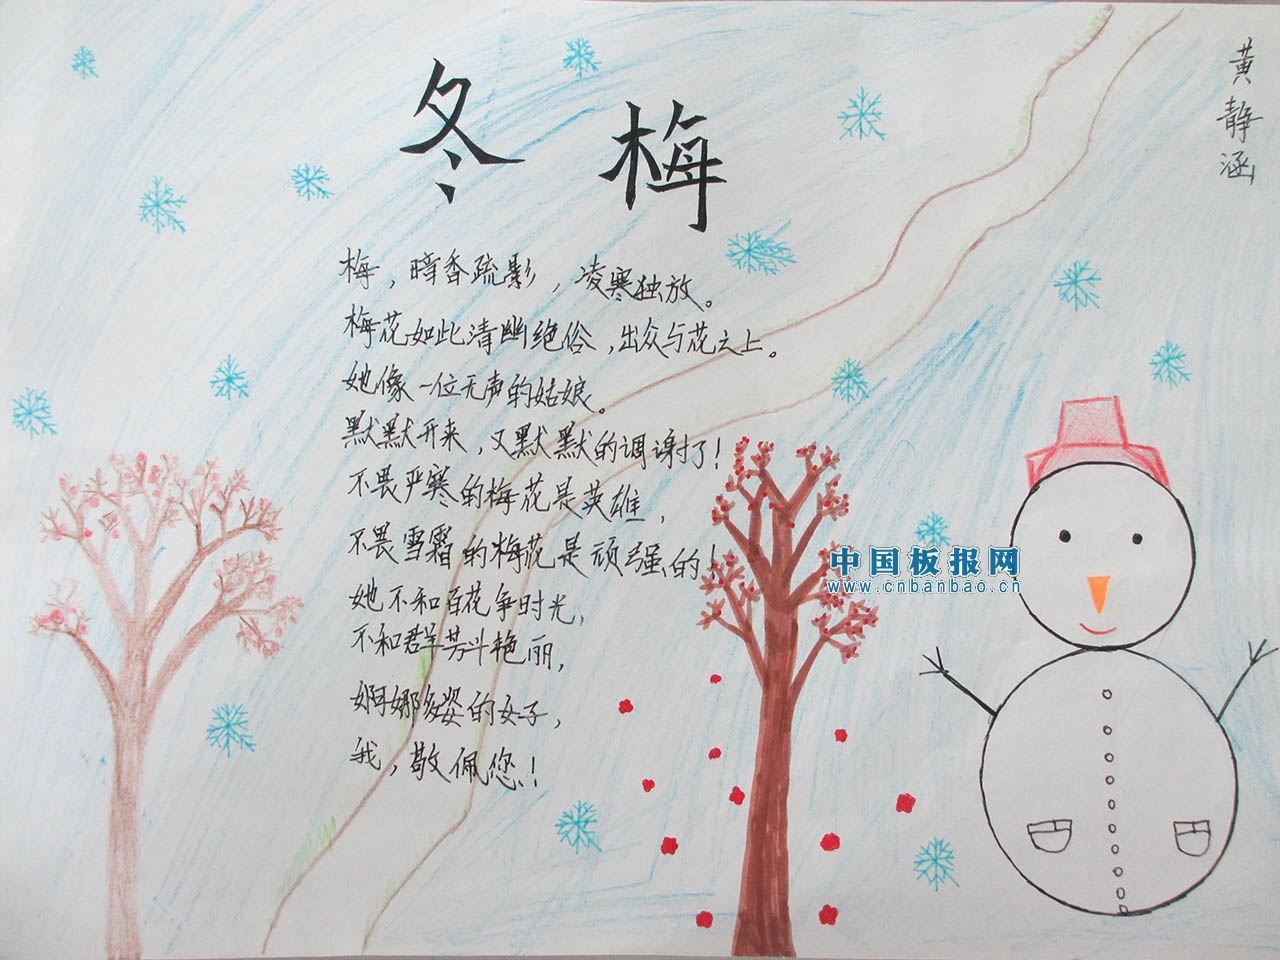 冬梅
黄静涵
梅，暗香疏影，凌寒独放。
梅花如此清幽绝俗，出众与花之上。
她像一位无声的姑娘。
默默开来，又默默的调谢了！
不畏严寒的梅花是英雄，
不畏雪霜的梅花是顽强的！
她不和百花争时光，
不和群芳斗艳丽，
婀娜多姿的女子，
我，敬佩您！
中国板报网
www.cnbanbao.cn